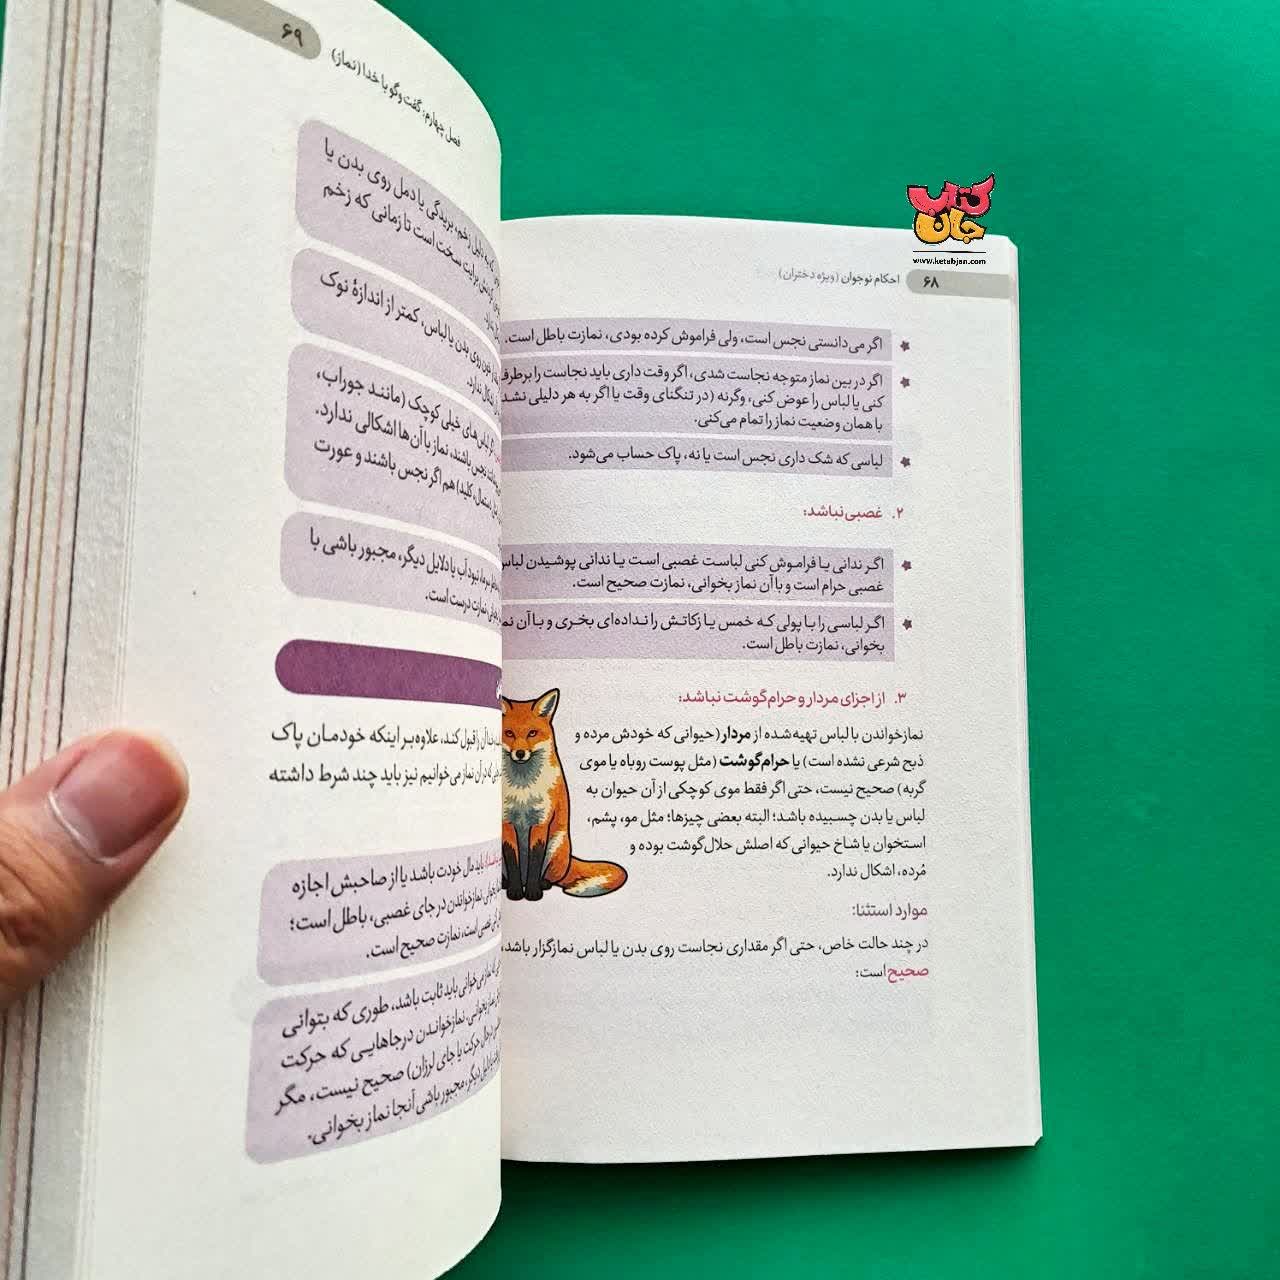 کتاب
جان
www.ketabjan.com
۶۸
احکام نوجوان (ویژه دختران)
اگر می‌دانستی نجس است، ولی فراموش کرده بودی، نمازت باطل است.
اگر در بین نماز متوجه نجاست شدی، اگر وقت داری باید نجاست را برطرف
کنی یا لباس را عوض کنی، وگرنه (در تنگنای وقت یا اگر به هر دلیلی نشد
با همان وضعیت نماز را تمام می‌کنی.
لباسی که شک داری نجس است یا نه، پاک حساب می‌شود.
۲. غصبی نباشد:
اگر ندانی یا فراموش کنی لباست غصبی است یا ندانی پوشیدن لباس
غصبی حرام است و با آن نماز بخوانی، نمازت صحیح است.
اگر لباسی را با پولی که خمس یا زکاتش را نداده‌ای بخری و با آن
بخوانی، نمازت باطل است.
۳. از اجزای مردار و حرام‌گوشت نباشد:
نمازخواندن با لباس تهیه‌شده از مردار (حیوانی که خودش مرده و
ذبح شرعی نشده است) یا حرام‌گوشت (مثل پوست روباه یا موی
گربه) صحیح نیست، حتی اگر فقط موی کوچکی از آن حیوان به
لباس یا بدن چسبیده باشد؛ البته بعضی چیزها؛ مثل مو، پشم،
استخوان یا شاخ حیوانی که اصلش حلال‌گوشت بوده و
مُرده، اشکال ندارد.
موارد استثنا:
در چند حالت خاص، حتی اگر مقداری نجاست روی بدن یا لباس نمازگزار باشد،
صحیح است:
فصل چهارم: گفت‌وگو با خدا (نماز)
۶۹
به دلیل زخم، بریدگی یا دمل روی بدن یا
برایت سخت است تا زمانی که زخم
خون روی بدن یا لباس، کمتر از اندازهٔ نوک
اشکال ندارد.
لباس‌های خیلی کوچک (مانند جوراب،
نجس باشند، نماز با آن‌ها اشکالی ندارد.
دستمال، کلید) هم اگر نجس باشند و عورت
نبود آب یا دلایل دیگر، مجبور باشی با
نمازت درست است.
خدا آن را قبول کند، علاوه‌بر اینکه خودمان پاک
که در آن نماز می‌خوانیم نیز باید چند شرط داشته
باید مال خودت باشد یا از صاحبش اجازه
نمازخواندن در جای غصبی، باطل است؛
غصبی است، نمازت صحیح است.
نماز می‌خوانی باید ثابت باشد، طوری که بتوانی
نماز بخوانی، نمازخواندن در جاهایی که حرکت
حال حرکت یا جای لرزان) صحیح نیست، مگر
دلیل دیگر، مجبور باشی آنجا نماز بخوانی.